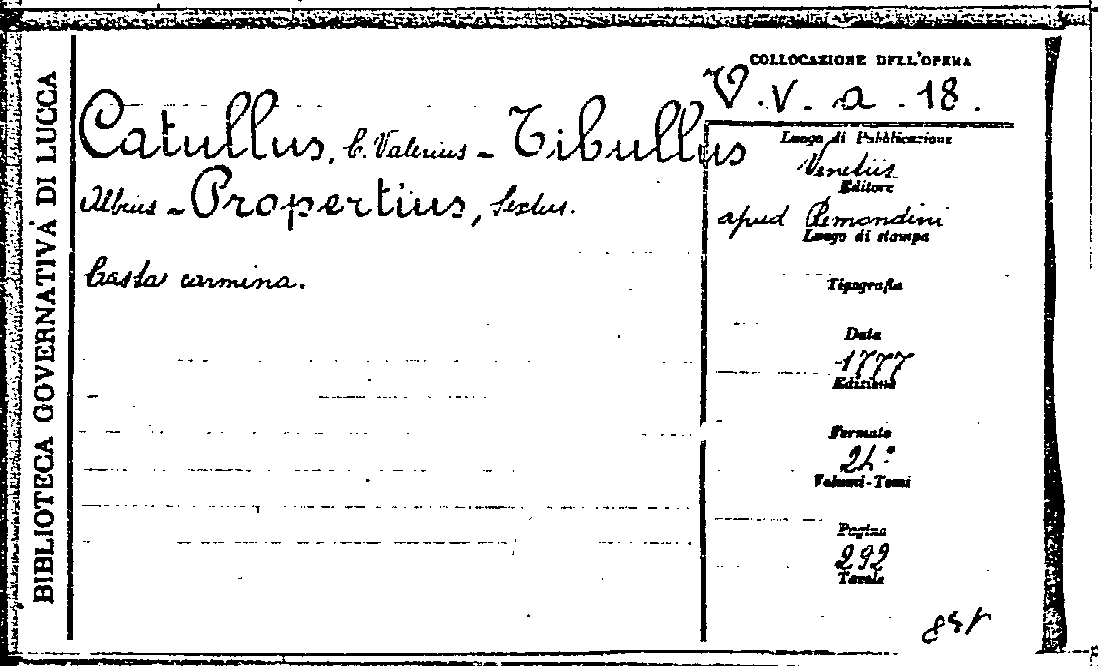 BIBLIOTECA GOVERNATIVA DI LUCCA
COLLOCAZIONE DELL'OPERA
V. V. a. 18.
Catullus, C. Valerius - Tibullus
Albius - Propertius, Sextus.
Casta carmina.
Luogo di Pubblicazione
Venetiis
Editore
apud Remondini
Luogo di stampa
Tipografia
Data
1777
Edizione
Formato
24°
Volumi-Tomi
Pagine
292
Tavole